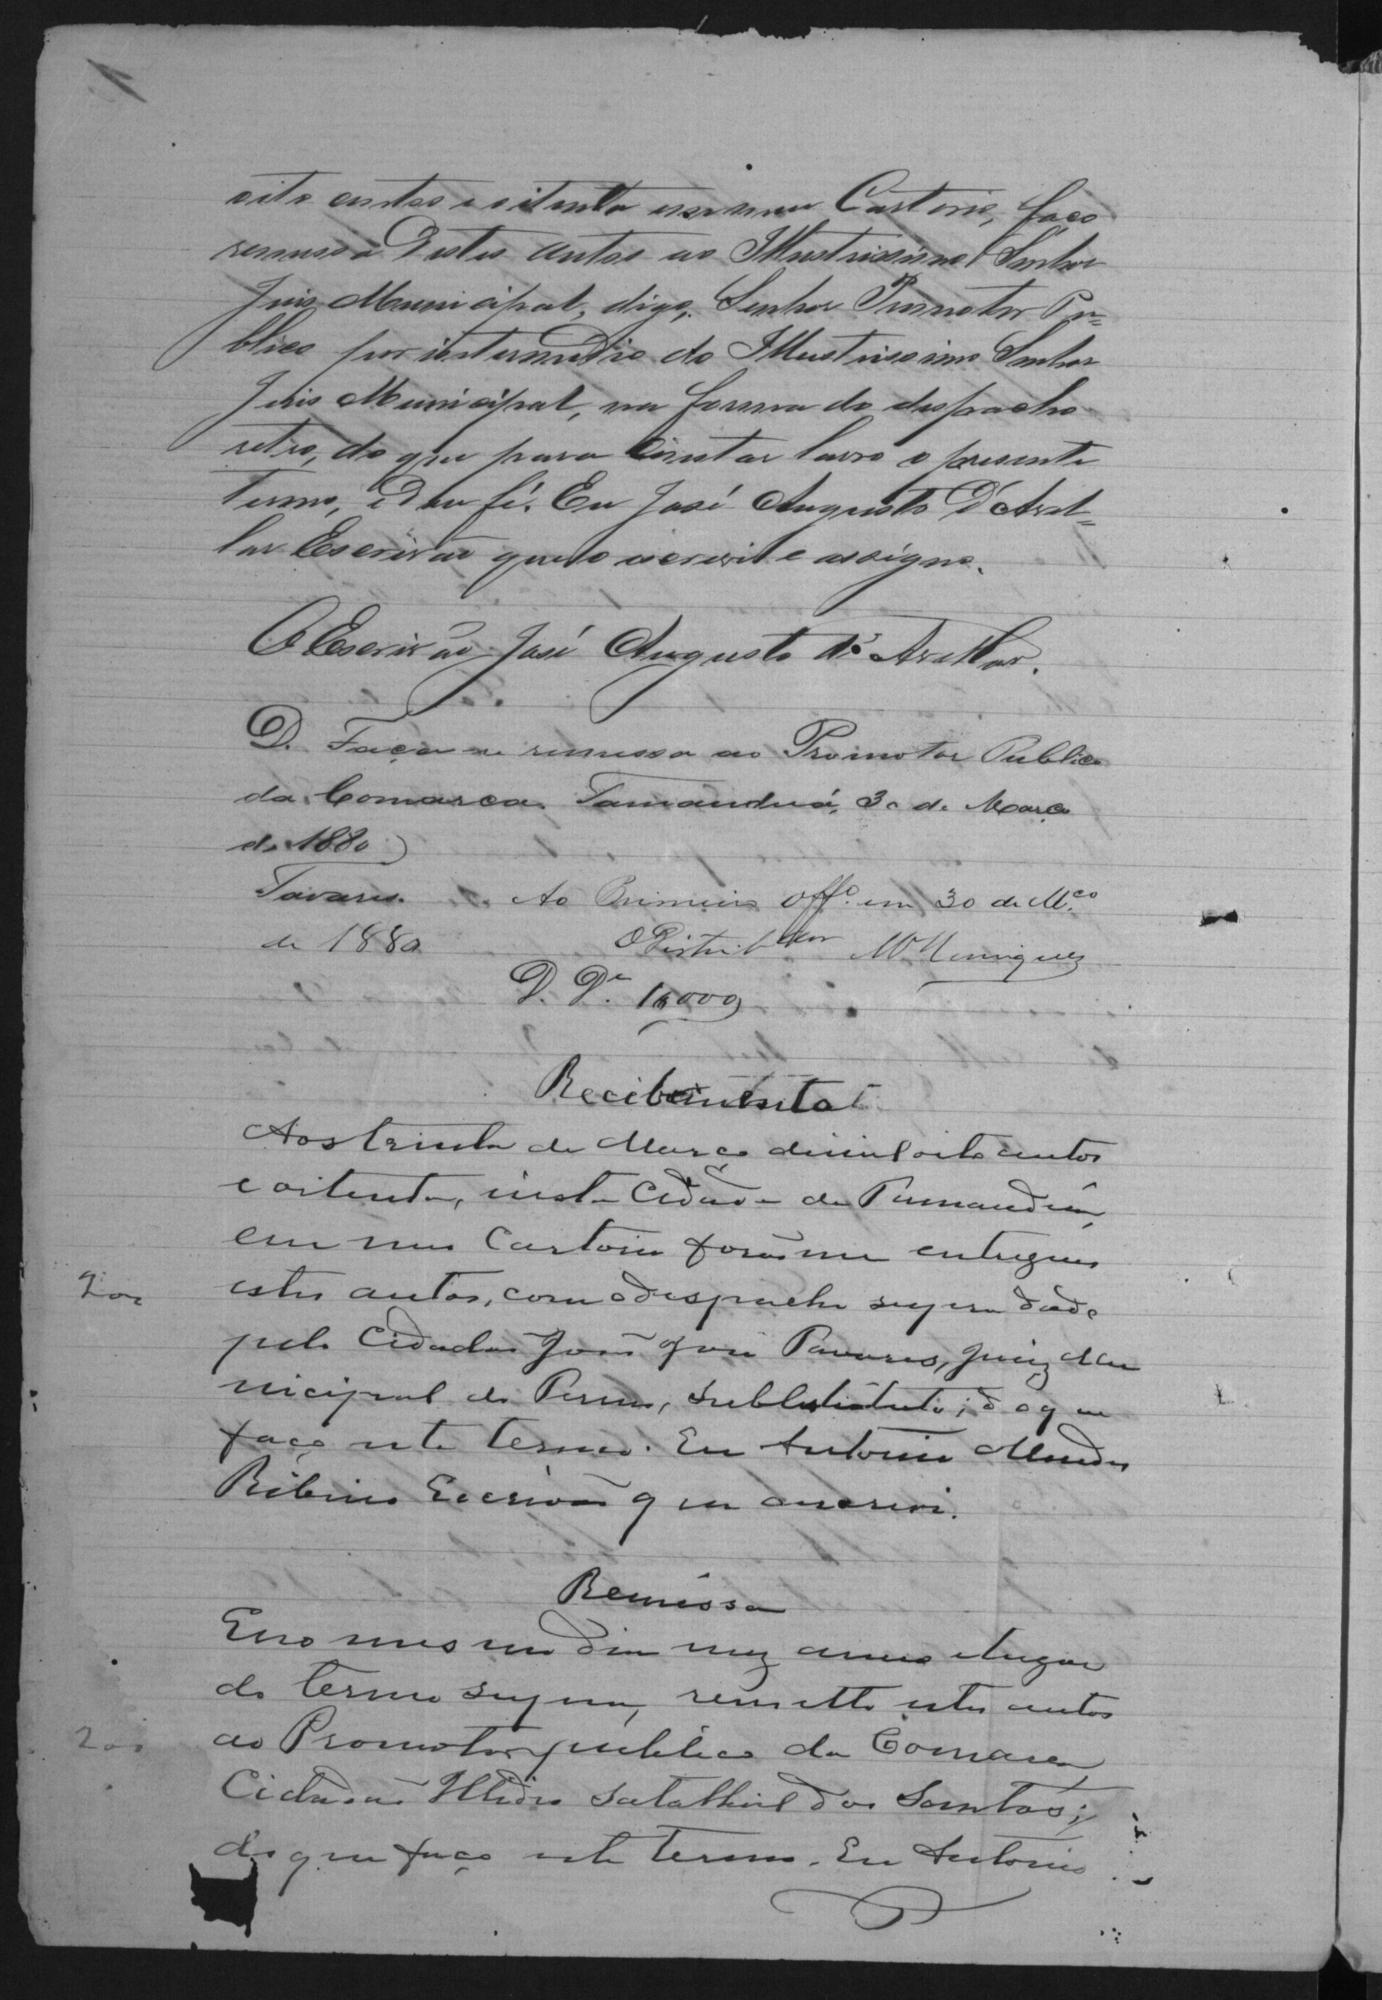 oito centos e oitenta em meu Cartorio, faço
remessa destes autos ao Illustrissimo Senhor
Juis Municipal, digo, Senhor Promotor Pu=
blico por intermedio do Illustrissimo Senhor
Juis Municipal, na forma do despacho
retro, do que para constar lavro o presente
Termo, e dou fé. Eu José Augusto D'Avel=
lar Escrivão que o escrevi e assigno.
O Escrivão José Augusto d'Avellar.
D. Faça-se remessa ao Promotor Publico
da Comarca. Tamanduá, 30 de Março
de 1880
Tavares. Ao Primeiro Offº. em 30 de Mço
de 1880 O Distribuidor M Henriques
D. Dª. 1$000
Recibimento
Aos trinta de Março de mil oito centos
e oitenta, nesta Cidade de Tamanduá,
em meu Cartorio forão me entregues
200 estes autos, com o despacho supra dado
pelo Cidadão João José Tavares, Juiz Mu
nicipal do Termo, Substituto; do que
faço este termo. Eu Antonio Mendes
Ribeiro Escrivão que escrevi.
Remessa
E no mesmo dia mez anno e lugar
do termo supra, remetto estes autos
200 ao Promotor publico da Comarca,
Cidadão Illidio dos Santos;
do que faço este termo. Eu Antonio